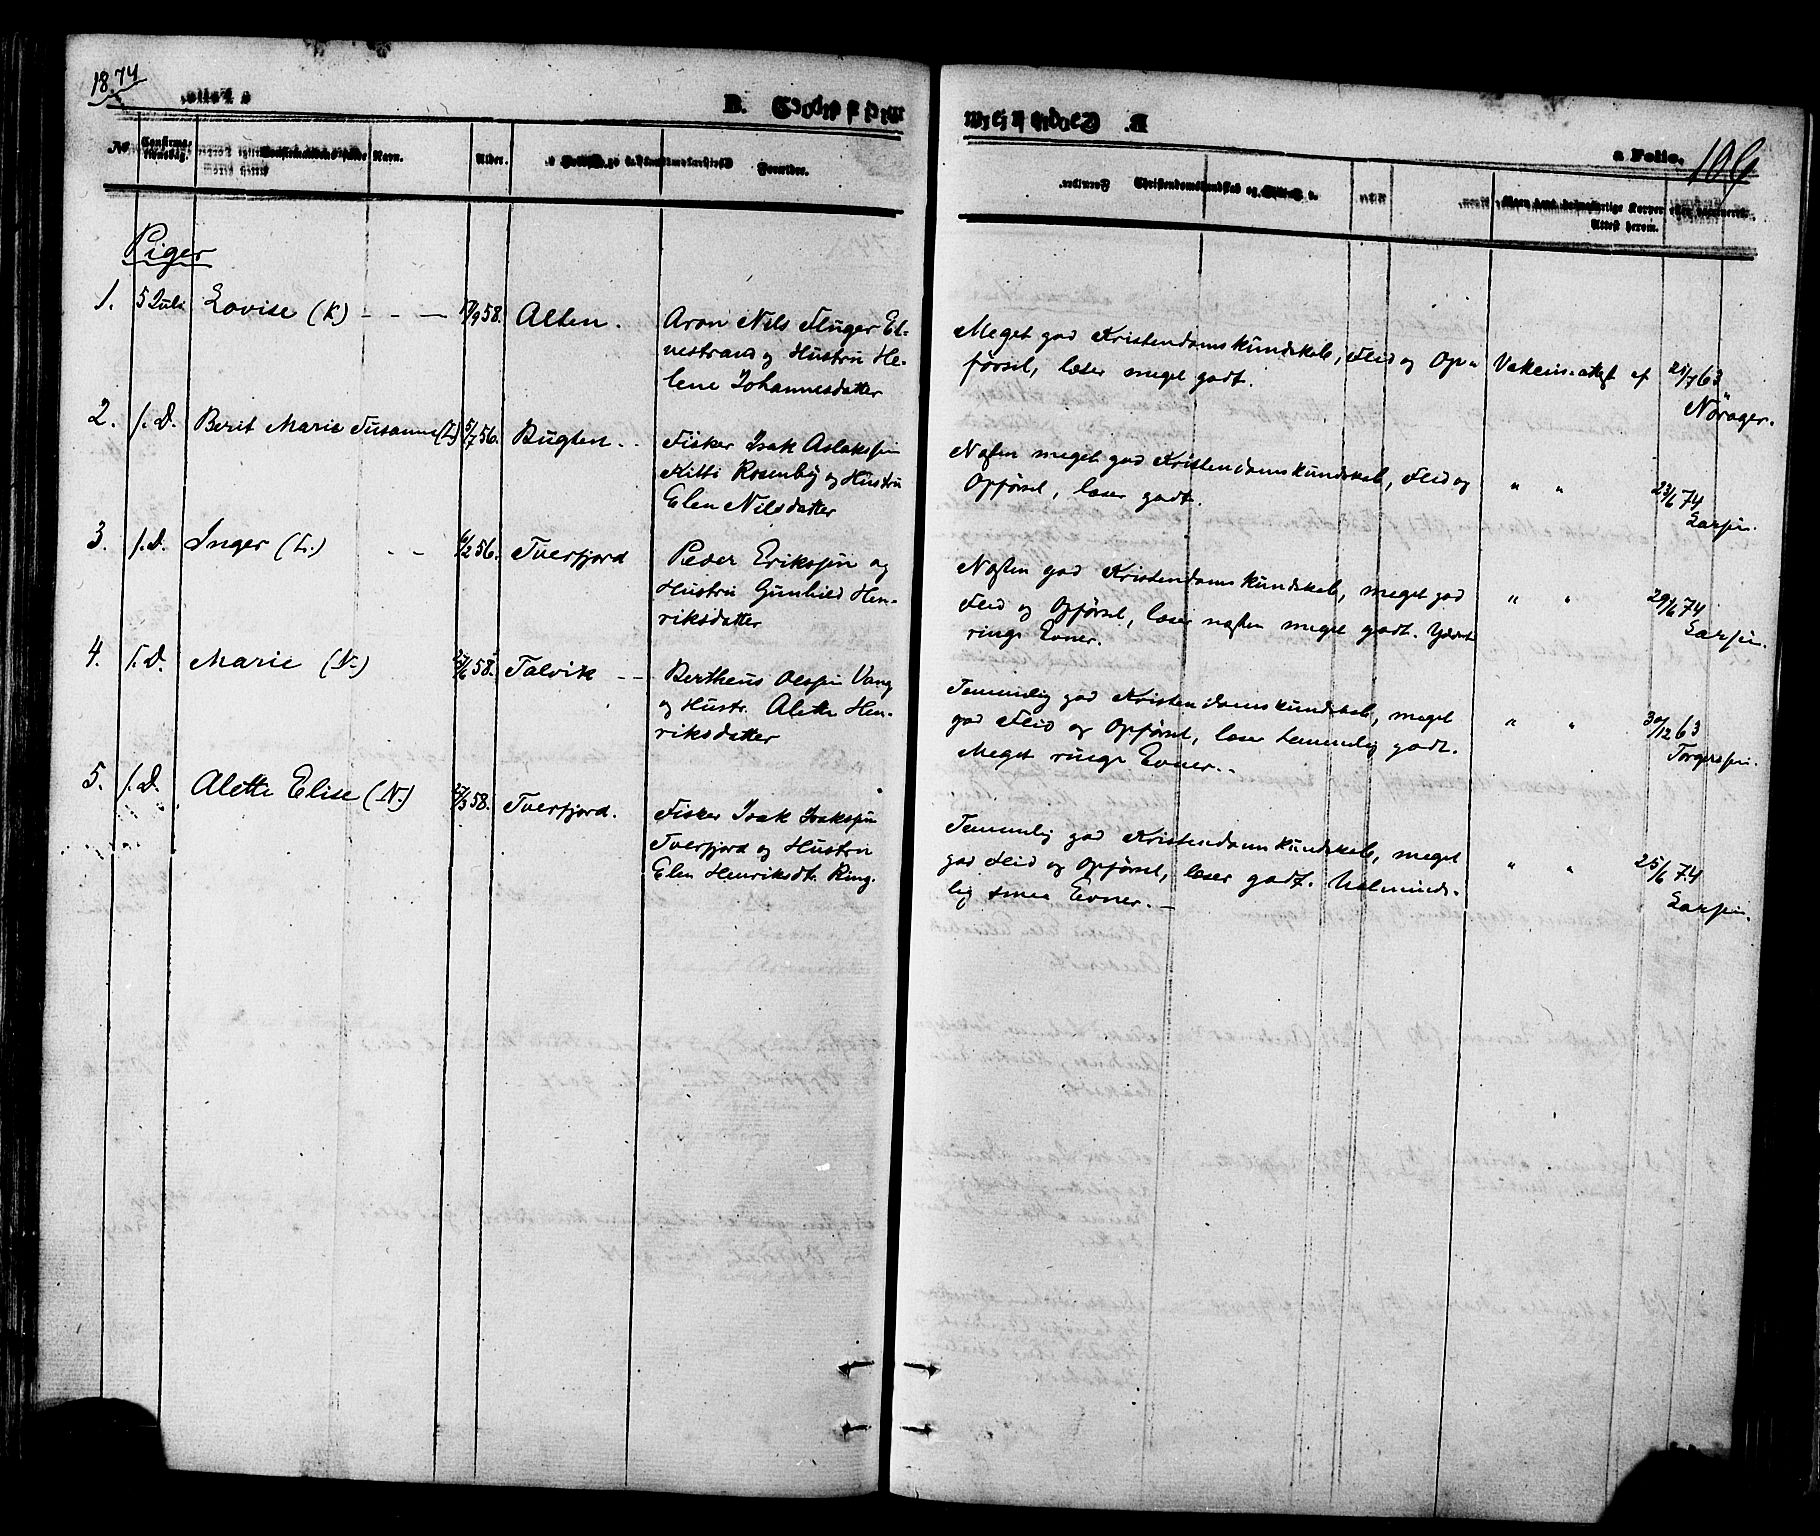 1874
106
a Folio.
No. Confirmationsdag. Navn. Alder. Forældre.
Piger
1. 5 Juli Lovise (K.) 58. Alten. Aron Nils Fluger El-
vestrand og Hustru He-
lene Johannesdatter
Meget god Kristendomskundskab, Flid og Op-
førsel, læser meget godt.
Vakcin.attest af 21/7 63
Nörager.
2. s.D. Berit Marie Susanne (L.) 5/7 56. Bugten Fisker Isak Aslakssen
Kitti Rosenby og Hustru
Elen Nilsdatter
Næsten meget god Kristendomskundskab, Flid og
Opførsel, læser godt.
" " 23/6 74
Larssen.
3. s.D. Inger (L.) 6/2 56. Tverfjord Peder Erikssen og
Hustru Gunhild Hen-
riksdatter
Næsten god Kristendomskundskab, meget god
Flid og Opførsel, læser næsten meget godt. Yderst
ringe Evner.
" " 29/6 74
Larssen.
4. s.D. Marie (N.) 27/6 58. Talvik Bertheus Olssen Vang
og Hustr. Alette Hen-
riksdatter
Temmelig god Kristendomskundskab, meget
god Flid og Opførsel, læser temmelig godt.
Meget ringe Evner.
" " 30/12 63
Torgerssen.
5. s.D. Alette Elise (N.) 27/3 58. Tverfjord. Fisker Isak Isakssen
Tverfjord og Hustru
Elen Henriksdt. Ring.
Temmelig god Kristendomskundskab, meget
god Flid og Opførsel, læser godt. Ualminde-
lig smaa Evner.
" " 25/6 74
Larssen.